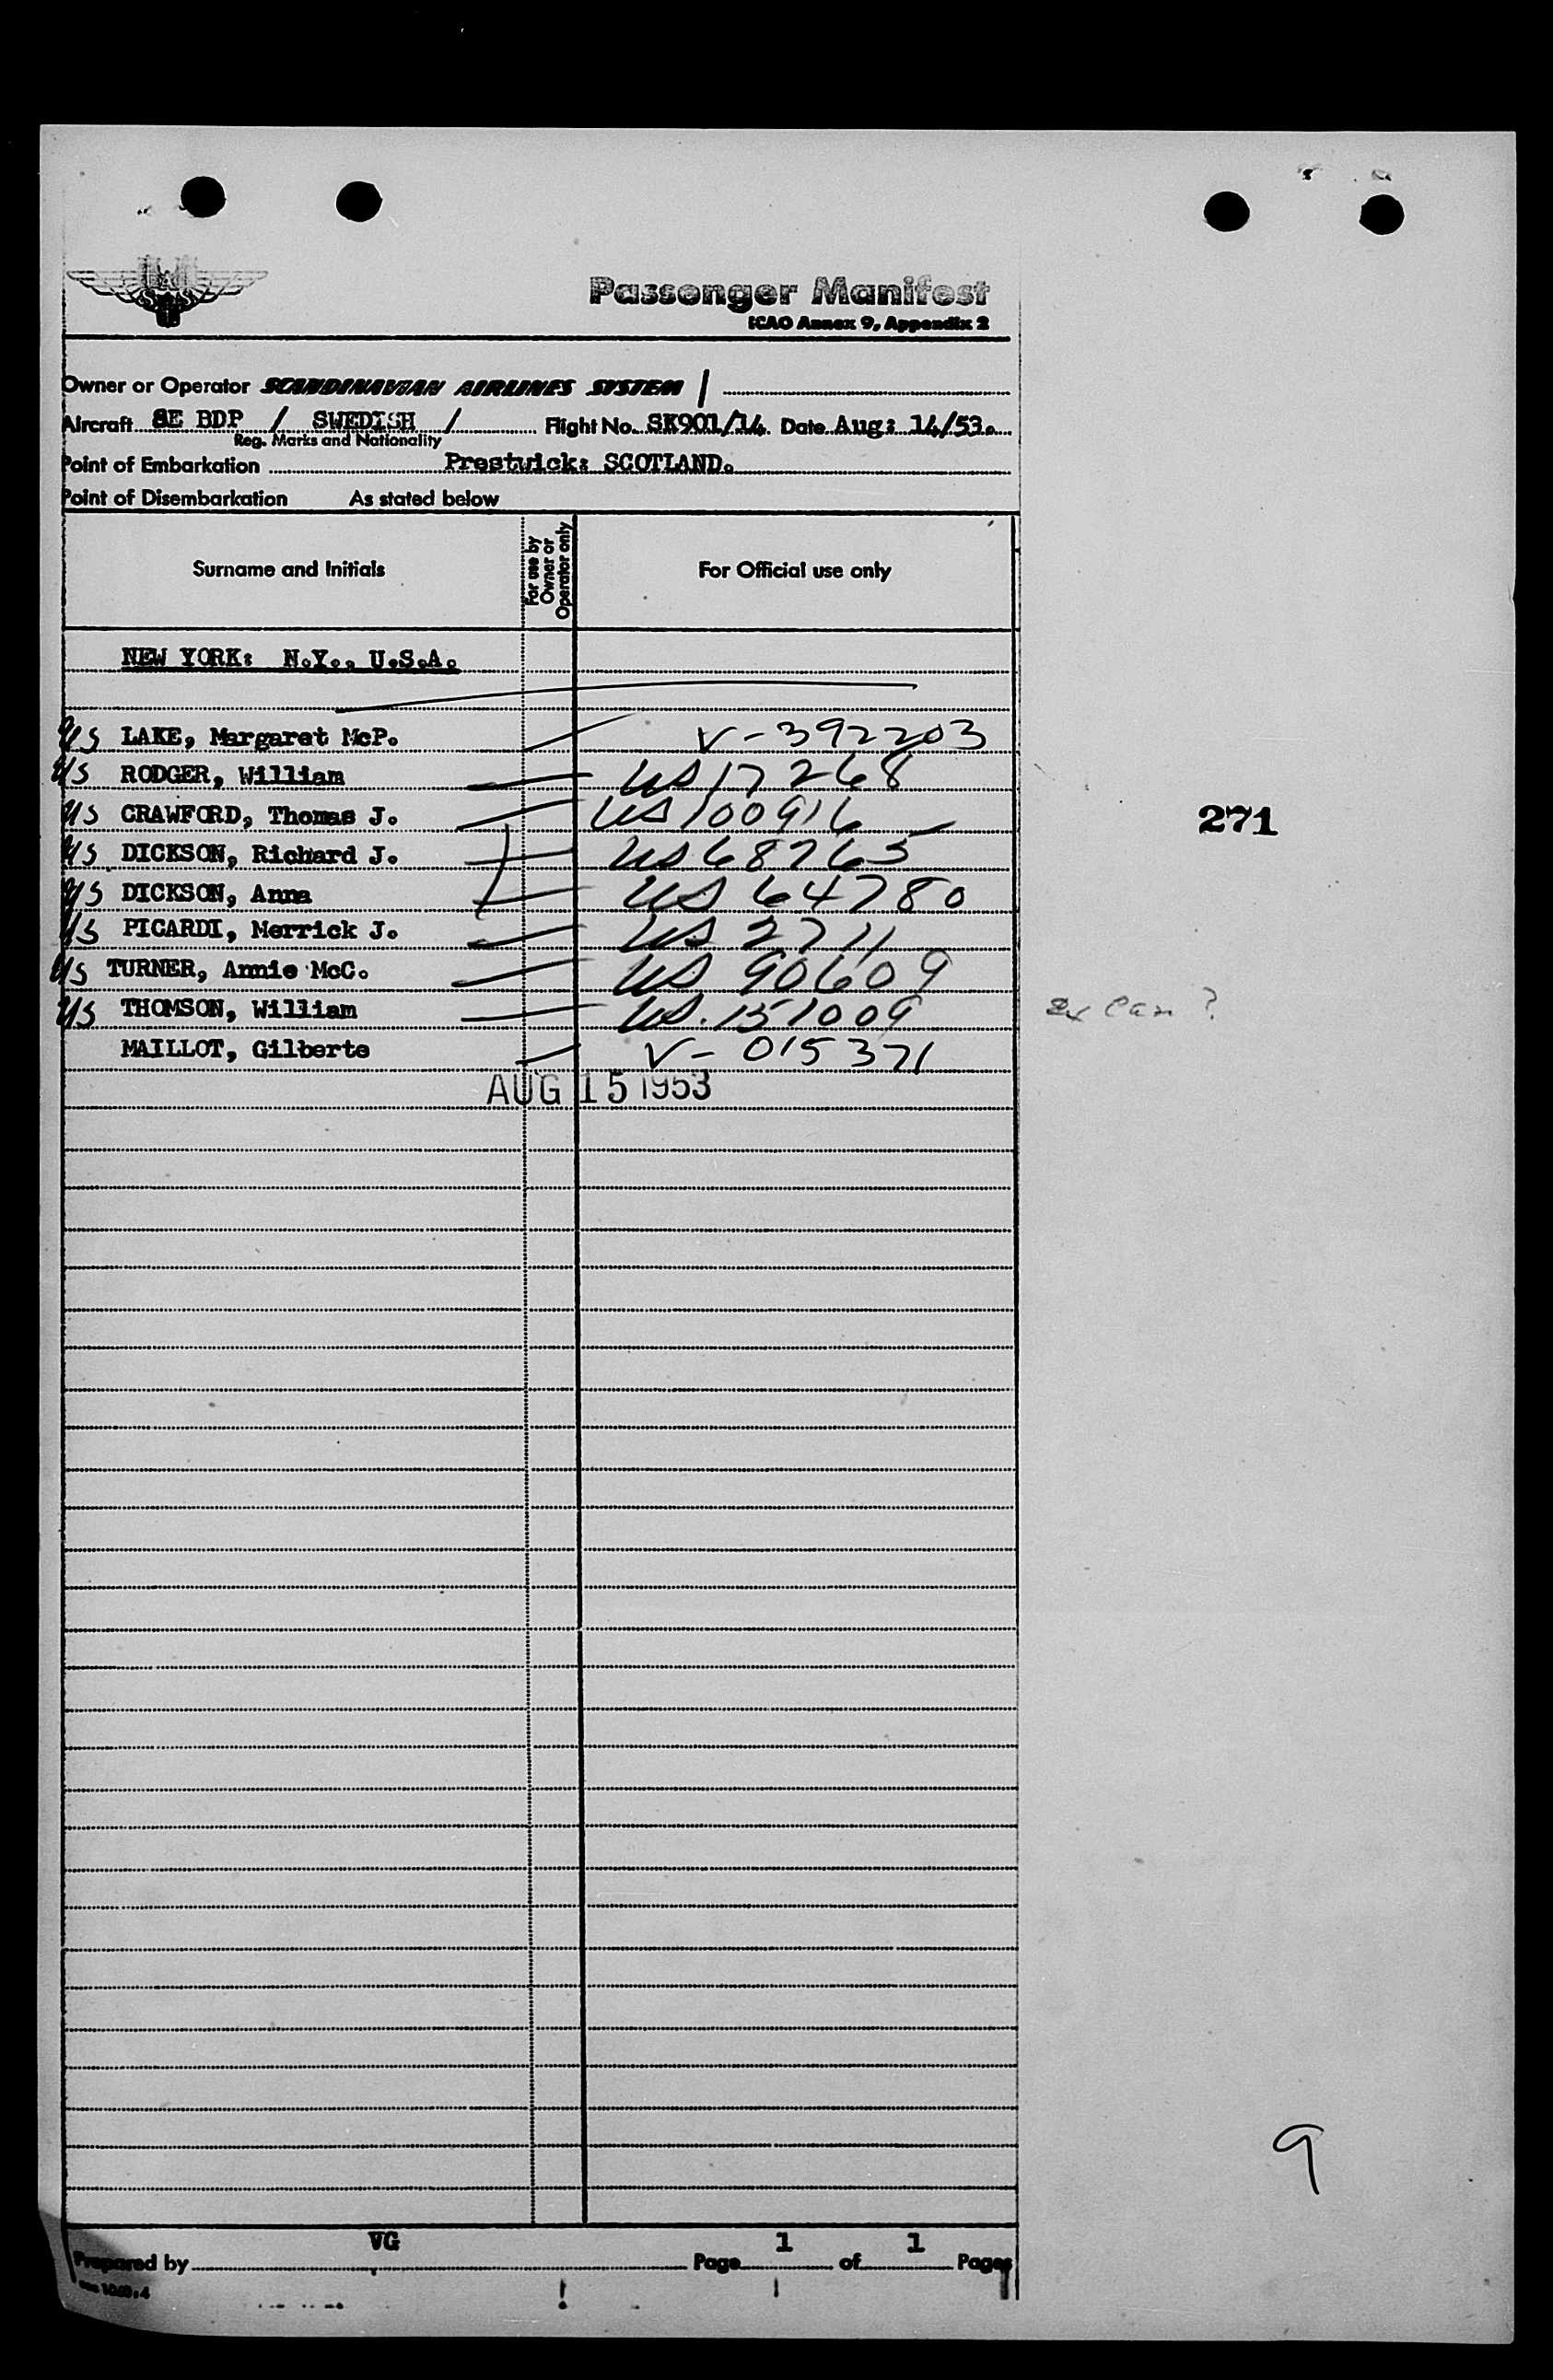 Passenger Manifest
ICAO Annex 9, Appendix 2
Owner or Operator SCANDINAVIAN AIRLINES SYSTEM
Aircraft SE BDP / SWEDISH / Flight No. SK901/14 Date Aug: 14/53.
Reg. Marks and Nationality
Point of Embarkation Prestwick: SCOTLAND.
Point of Disembarkation As stated below
Surname and Initials For use by Owner or Operator only For Official use only
NEW YORK: N.Y., U.S.A.
US LAKE, Margaret McP. V-392203
US RODGER, William US 17268
US CRAWFORD, Thomas J. US 100916
271
US DICKSON, Richard J. US 68765
US DICKSON, Anna US 64780
US PICARDI, Merrick J. US 2711
US TURNER, Annie McC. US 90609
US THOMSON, William US. 151009 ex Can?
MAILLOT, Gilberte V-015371
AUG 15 1953
9
VG 1 1
Prepared by Page of Pages